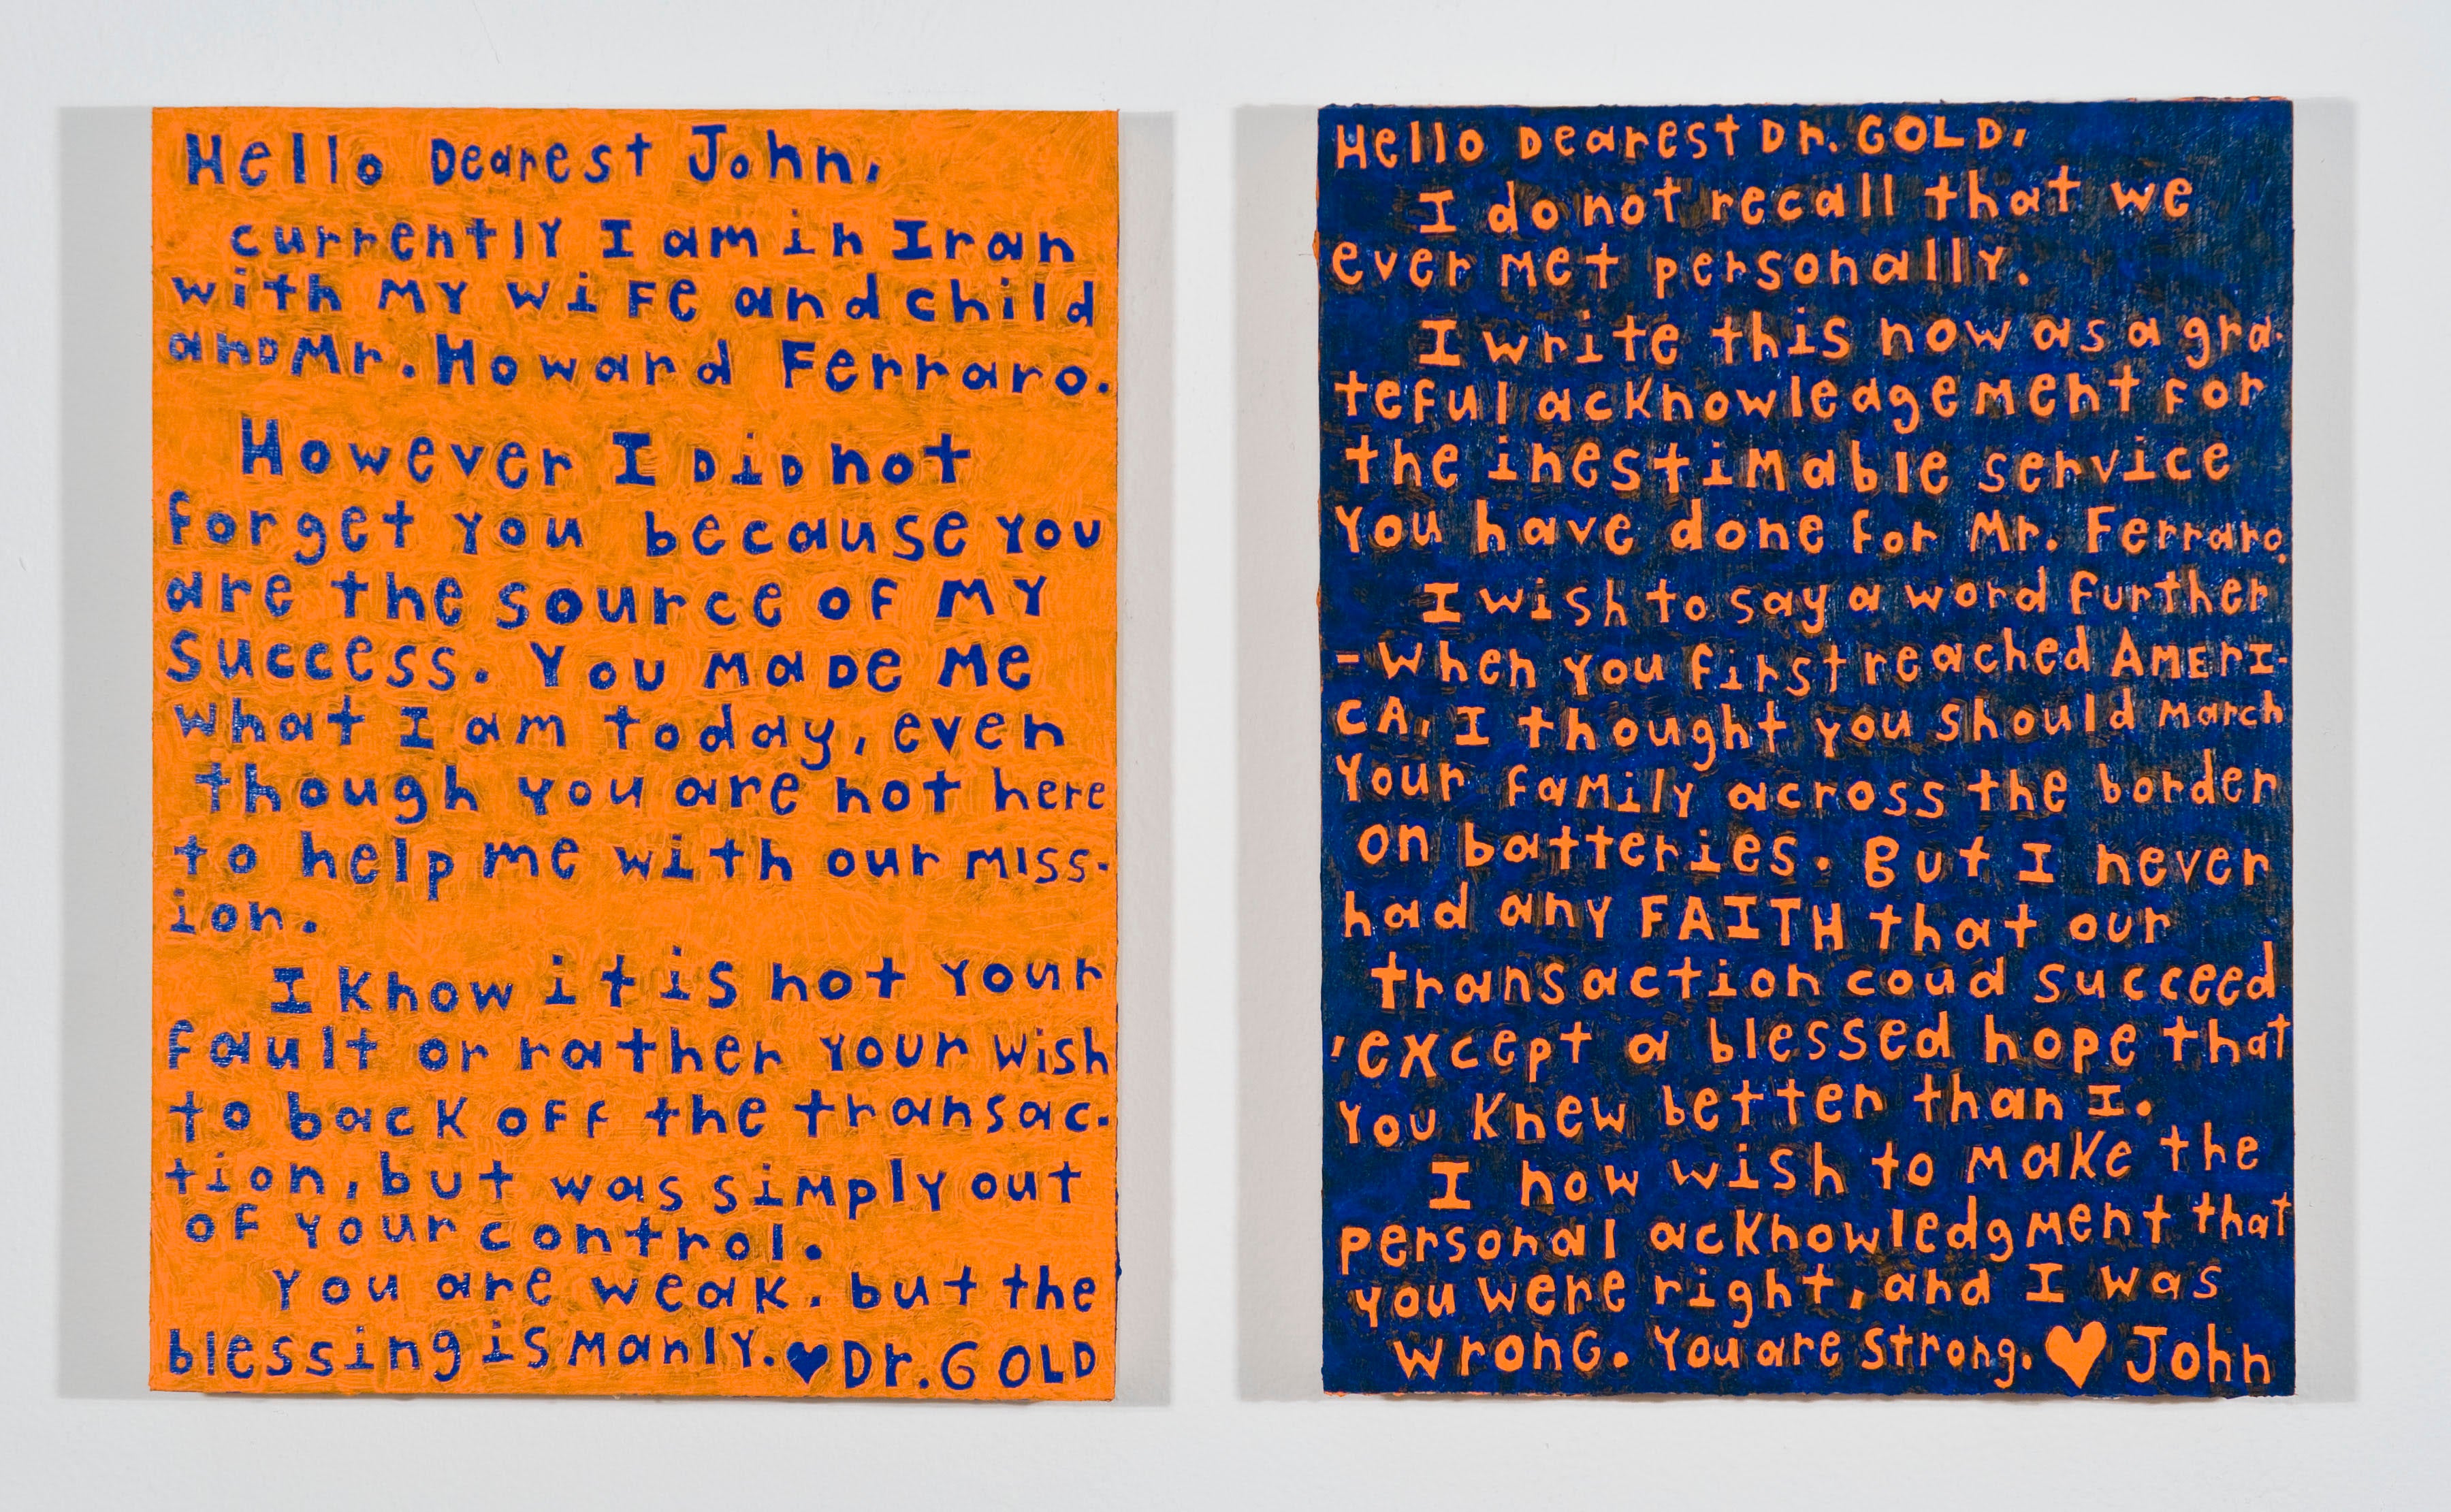 Hello Dearest John,
currently I am in Iran
with MY wiFe and child
anD Mr. Howard Ferraro.
However I DiD not
forget You because You
are the source oF MY
Success. You MaDe Me
what I am today, even
though you are not here
to help me with our miss-
ion.
I know it is not Your
fault or rather Your wish
to back oFF the transac-
tion, but was simply out
oF Your control.
You are weak. but the
blessing is Manly. ♥ Dr. GOLD
Hello Dearest Dr. GOLD,
I do not recall that we
ever met personally.
I write this now as a gra-
teFul acknowledgement for
the inestimable service
You have done for Mr. Ferraro.
I wish to say a word further
- when You first reached AMErI-
CA, I thought you should march
Your family across the border
on batteries. But I never
had any FAITH that our
transaction coud succeed
,except a blessed hope that
You knew better than I.
I now wish to make the
personal acknowledgment that
you were right, and I was
wronG. You are strong. ♥ John